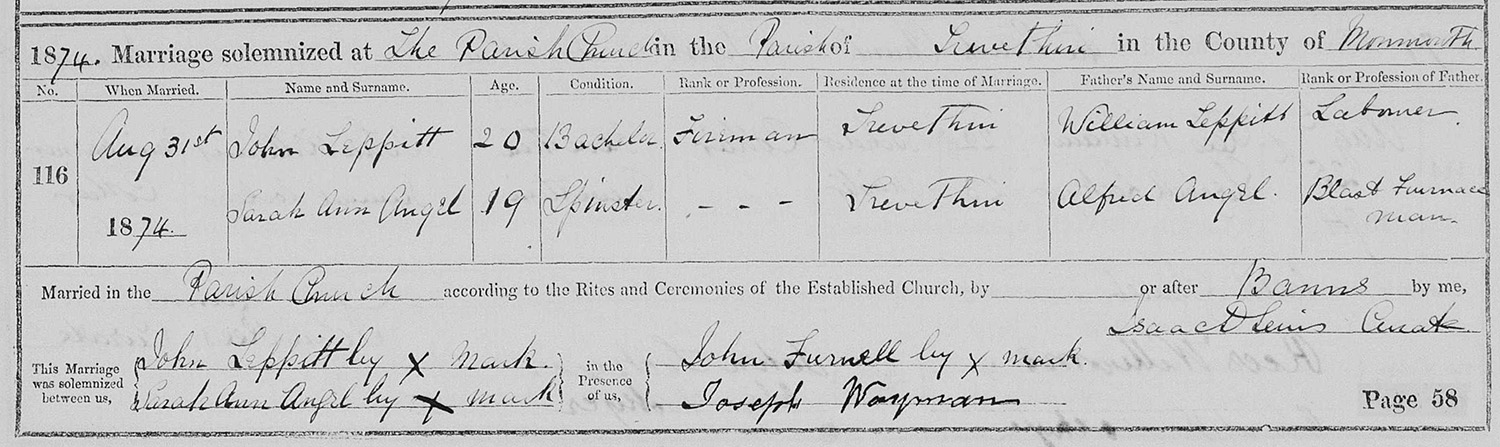 1874. Marriage solemnized at The Parish Church in the Parish of Trevethin in the County of Monmouth
No. When Married. Name and Surname. Age. Condition. Rank or Profession. Residence at the time of Marriage. Father's Name and Surname. Rank or Profession of Father.
116 Aug 31st John Leppitt 20 Bachelor Fireman Trevethin William Leppitt Labourer.
1874. Sarah Ann Angel 19 Spinster. - - - Trevethin Alfred Angel. Blast Furnace
man.
Married in the Parish Church according to the Rites and Ceremonies of the Established Church, by or after Banns by me,
Isaac D Lewis Curate
This Marriage was solemnized between us, John Leppitt by X mark. in the Presence of us, John Furnell by X mark.
Sarah Ann Angel by X mark Joseph Wayman
Page 58